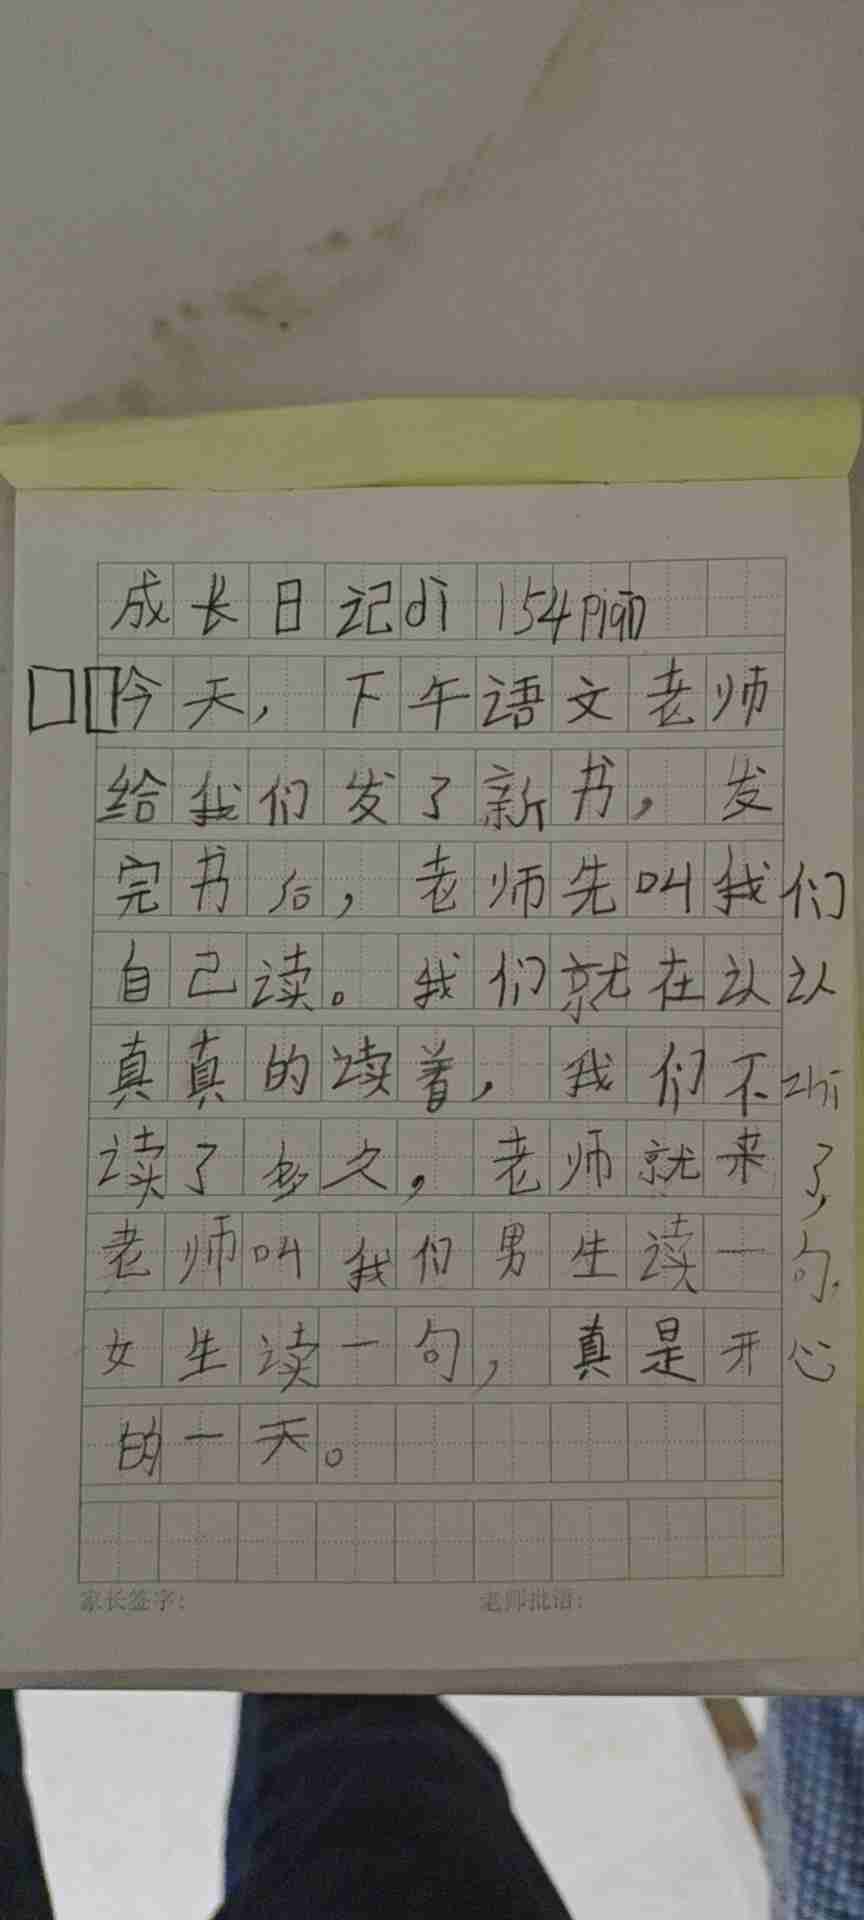 成长日记dì 154piān
今天，下午语文老师
给我们发了新书，发
完书后，老师先叫我们
自己读。我们就在认认
真真的读着，我们不zhī
读了多久，老师就来了，
老师叫我们男生读一句，
女生读一句，真是开心
的一天。
家长签字：  老师批语：